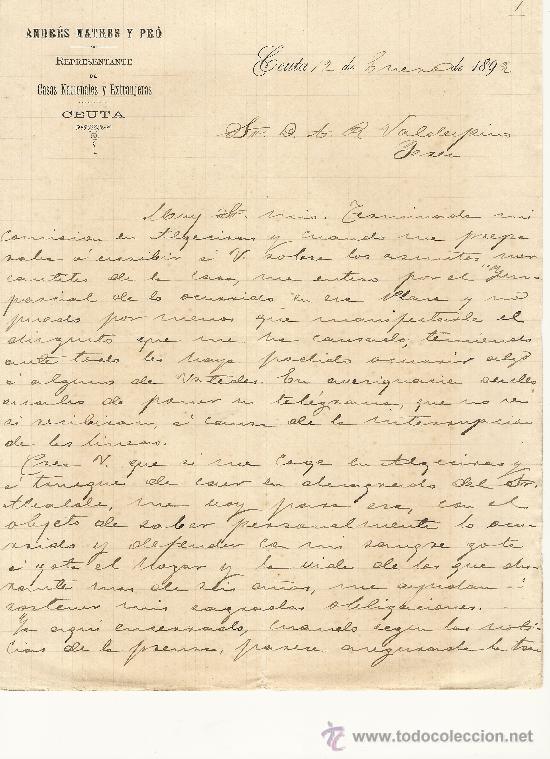 1
ANDRÉS MATHES Y PRÓ
REPRESENTANTE
DE
Casas Nacionales y Extranjeras
CEUTA
Ceuta 12 de Enero de 1892
Sr. D. A. R. Valdespino
Jerez
Muy Sr. mio. Terminada mi
comision en Algeciras y cuando me prepa
raba á escribir á V. sobre los asuntos mer
cantiles de la casa, me entero por el "Im
parcial de lo ocurrido en esa Plaza y no
puedo por menos que manifestarle el
disgusto que me ha causado, temiendo
ante todo les haya podido ocurrir algo
á alguno de Vstedes. En averiguarlo
de poner un telégrama, que no se
si recibiran, á causa de la interrupcion
de las lineas.
Crea V. que si me coge en Algeciras y
á tuviese de caer en desagrado del Sr.
Alcalde, me voy para esa, con el
objeto de saber personalmente lo ocu
rrido y defender con mi sangre gota
á gota el hogar y la vida de los que du
rante mas de seis años, me ayudan á
sostener mis sagradas obligaciones.
Ya aqui encerrado, cuando segun las noti
cias de la prensa, parece asegurada la tran
todocoleccion
www.todocoleccion.net